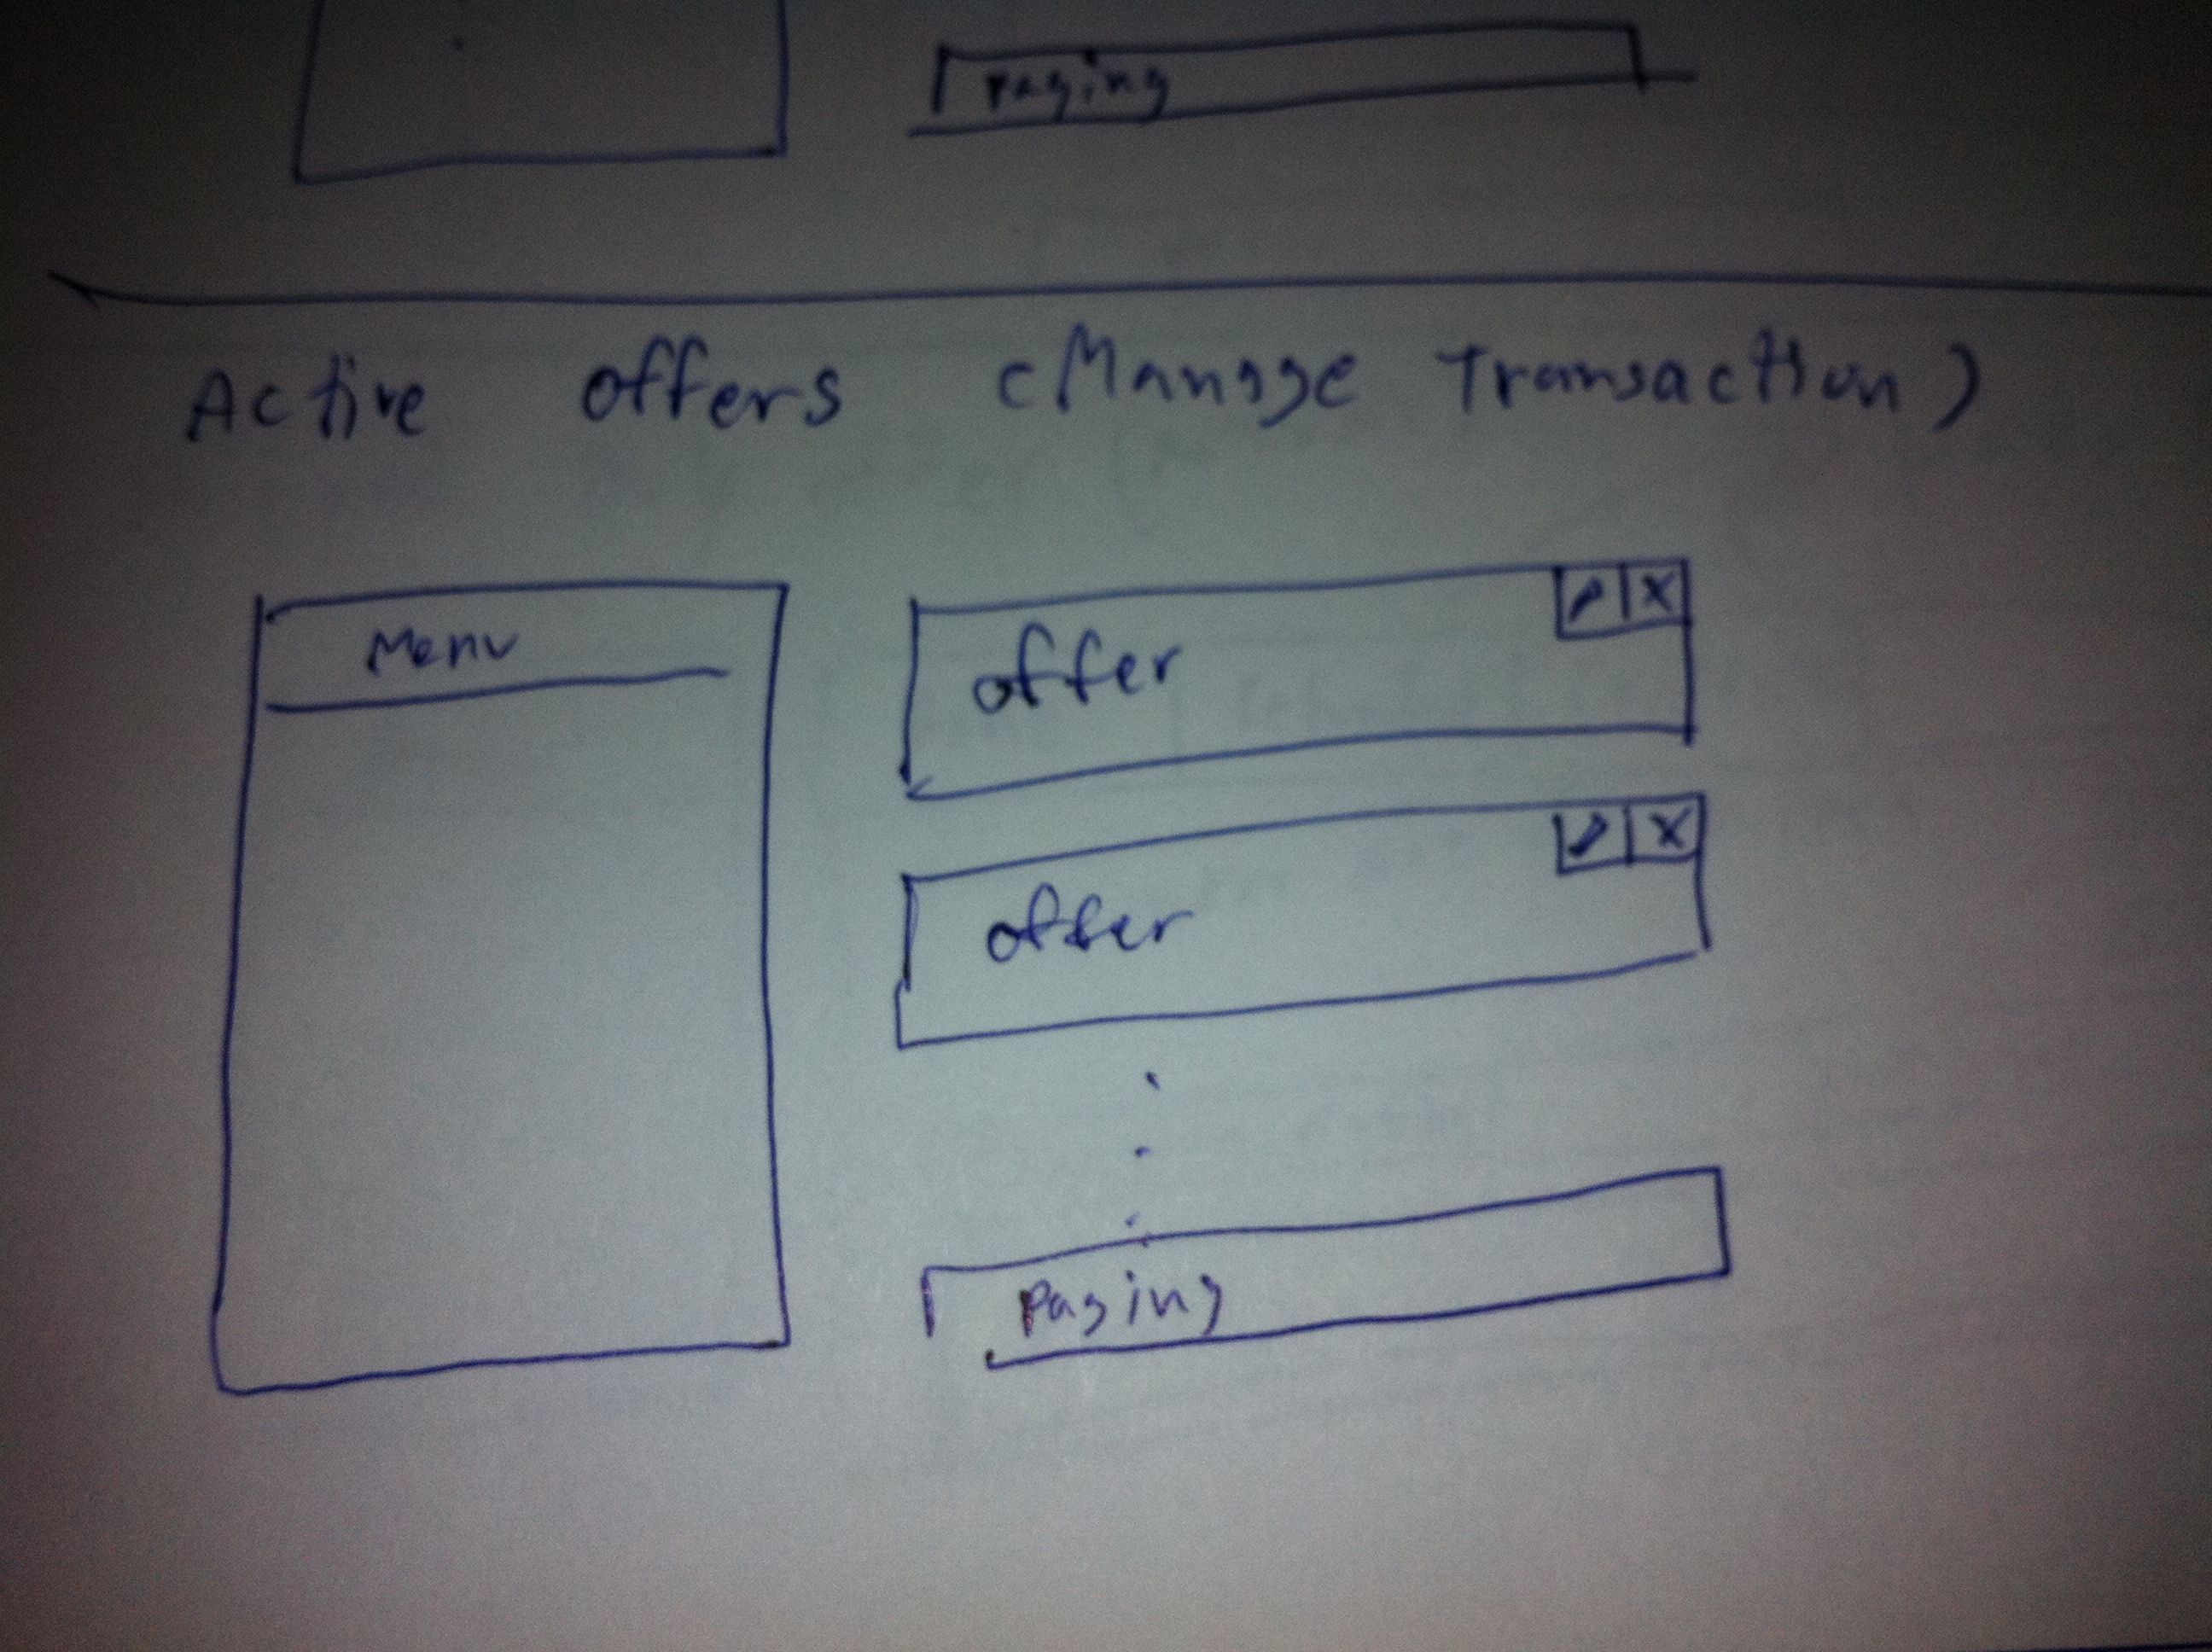 Paging
Active offers (Mange Transaction)
Menu
offer ✓ X
offer ✓ X
Paging